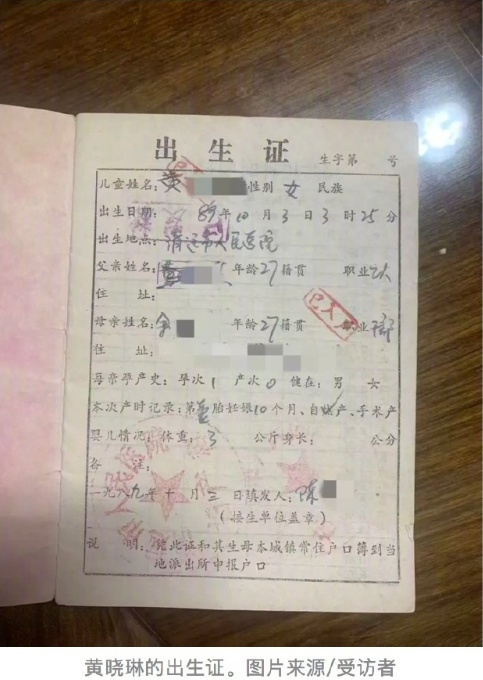 出生证 生字第 号
儿童姓名: 黄 性别 女 民族
出生日期: 89年10月3日3时25分
出生地点: 清远市人民医院
父亲姓名: 年龄27籍贯 职业
住 址:
母亲姓名: 余 年龄27籍贯 职业
住 址:
母亲孕产史: 孕次1 产次0 健在: 男 女
本次产时记录: 第 胎妊娠10个月、自然产、手术产
婴儿情况: 体重: 3 公斤身长: 公分
备 注:
一九八九年十月三日填发人: 陈
(接生单位盖章)
说 明: 凭此证和其生母本城镇常住户口簿到当
地派出所申报户口
黄晓琳的出生证。图片来源/受访者